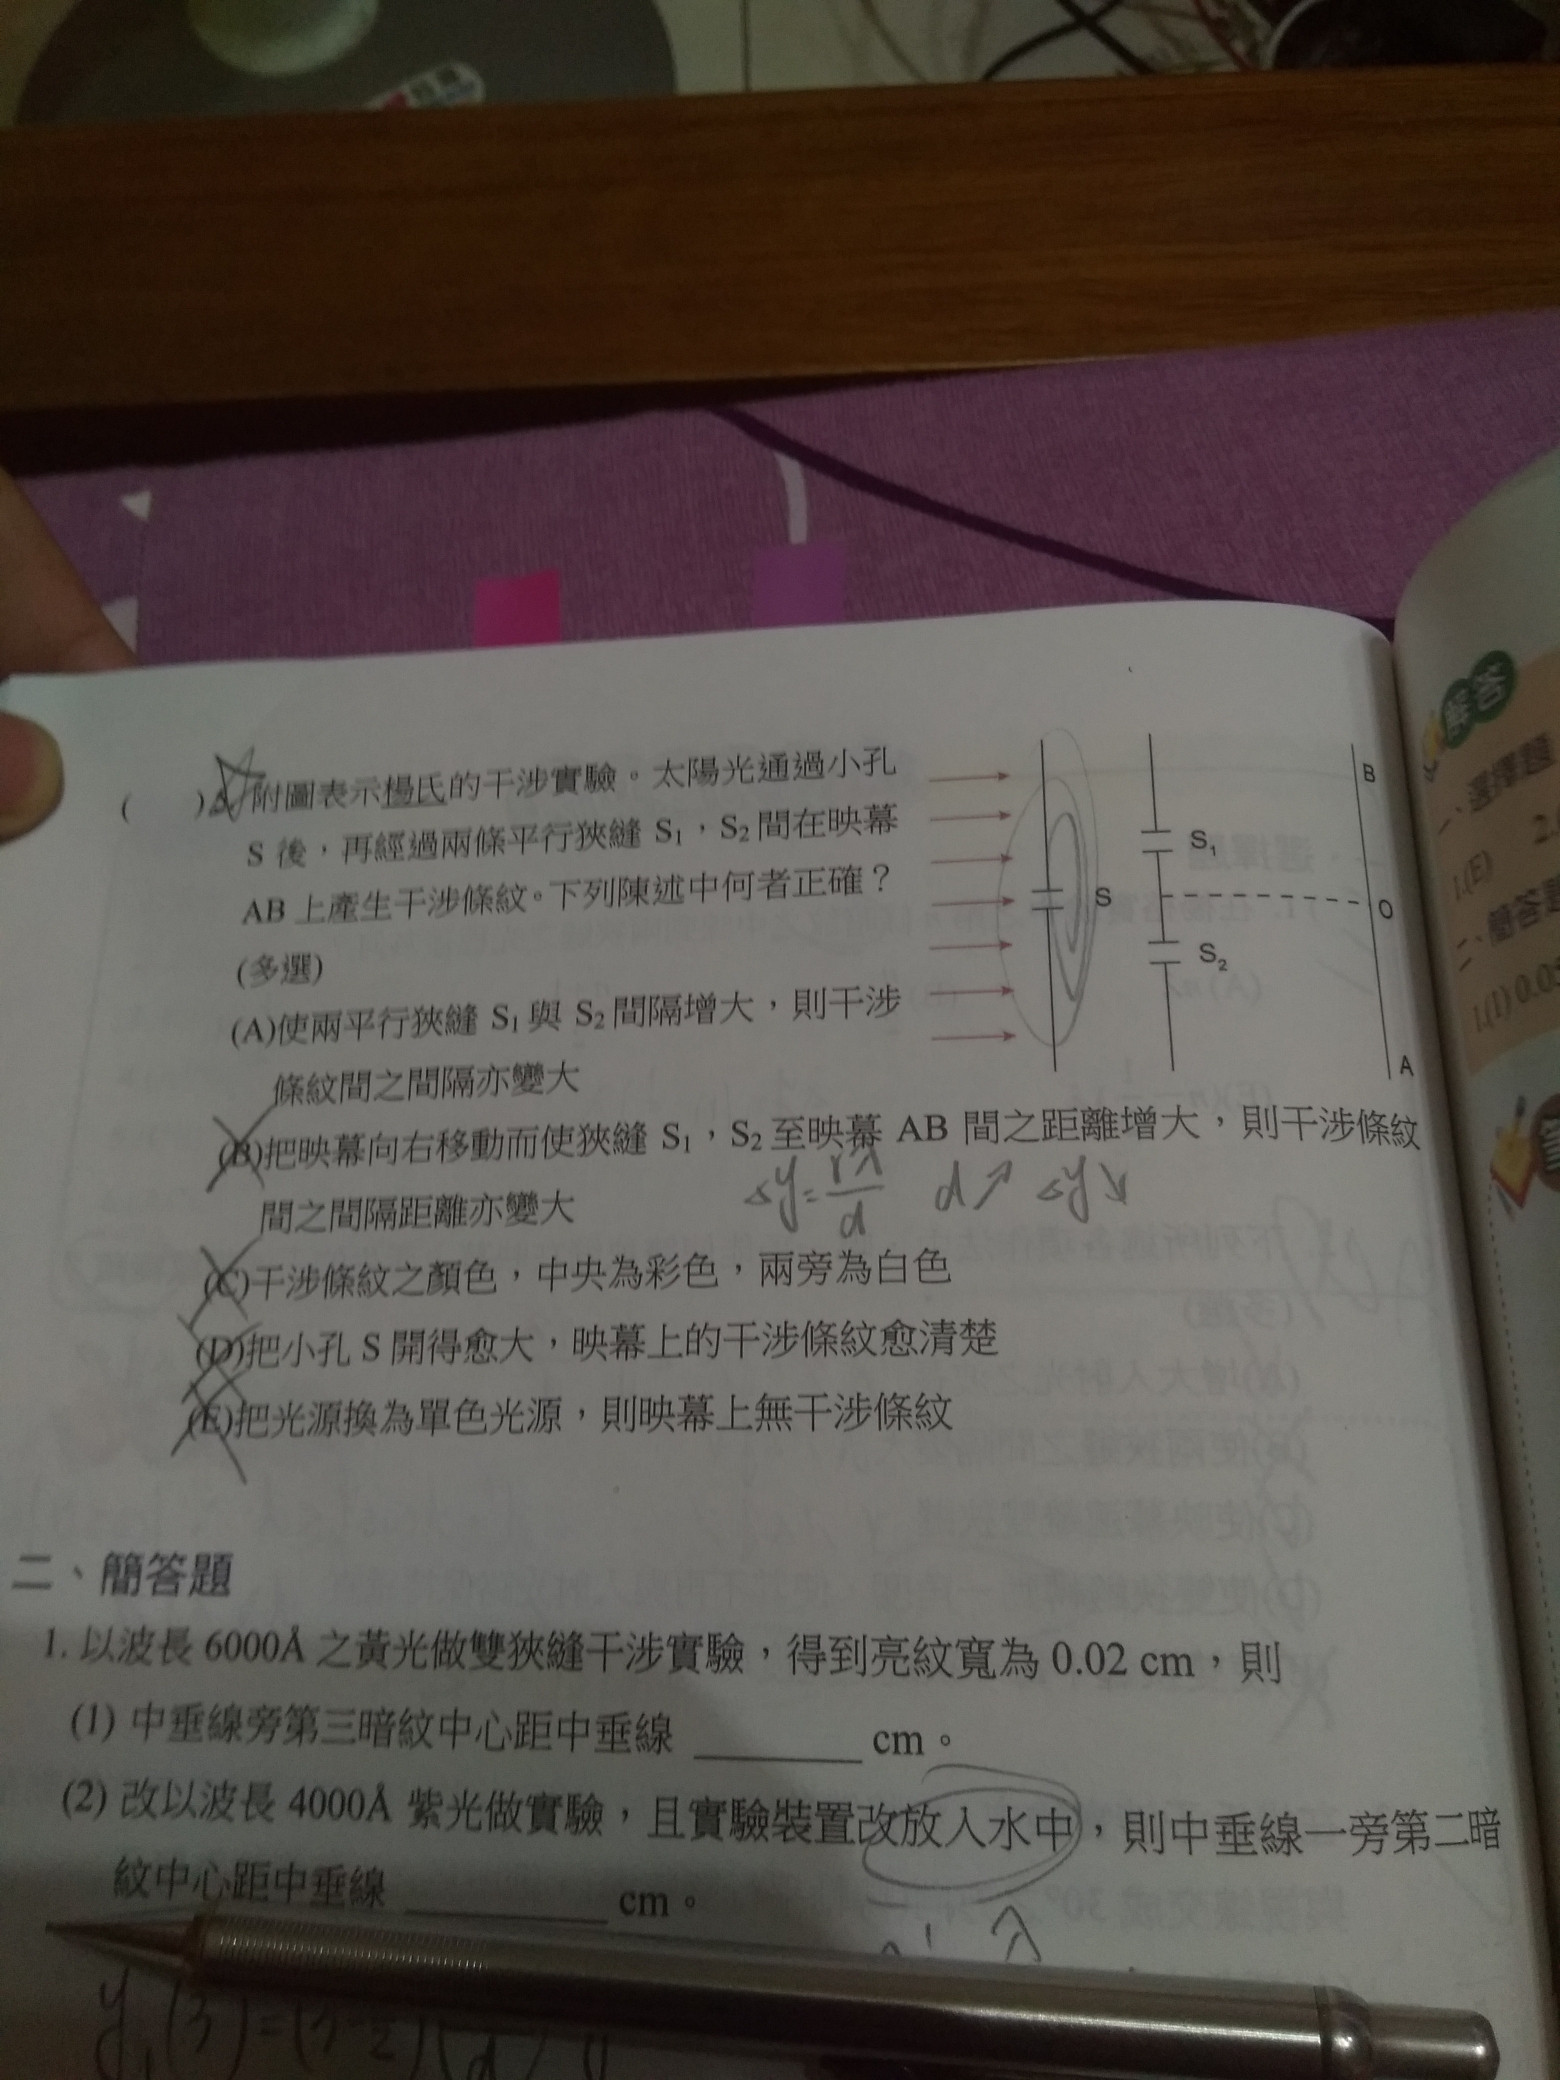 ( ) 附圖表示楊氏的干涉實驗。太陽光通過小孔
S 後，再經過兩條平行狹縫 S₁，S₂ 間在映幕
AB 上產生干涉條紋。下列陳述中何者正確？
(多選)
(A)使兩平行狹縫 S₁ 與 S₂ 間隔增大，則干涉
條紋間之間隔亦變大
(B)把映幕向右移動而使狹縫 S₁，S₂ 至映幕 AB 間之距離增大，則干涉條紋
間之間隔距離亦變大
△y=rλ/d d↗ △y↘
(C)干涉條紋之顏色，中央為彩色，兩旁為白色
(D)把小孔 S 開得愈大，映幕上的干涉條紋愈清楚
(E)把光源換為單色光源，則映幕上無干涉條紋
S
S₁
S₂
B
O
A
二、簡答題
1. 以波長 6000Å 之黃光做雙狹縫干涉實驗，得到亮紋寬為 0.02 cm，則
(1) 中垂線旁第三暗紋中心距中垂線 ______ cm。
(2) 改以波長 4000Å 紫光做實驗，且實驗裝置改放入水中，則中垂線一旁第二暗
紋中心距中垂線 ______ cm。
解答
一、選擇題
1.(E) 2.
二、簡答
1.(1) 0.0